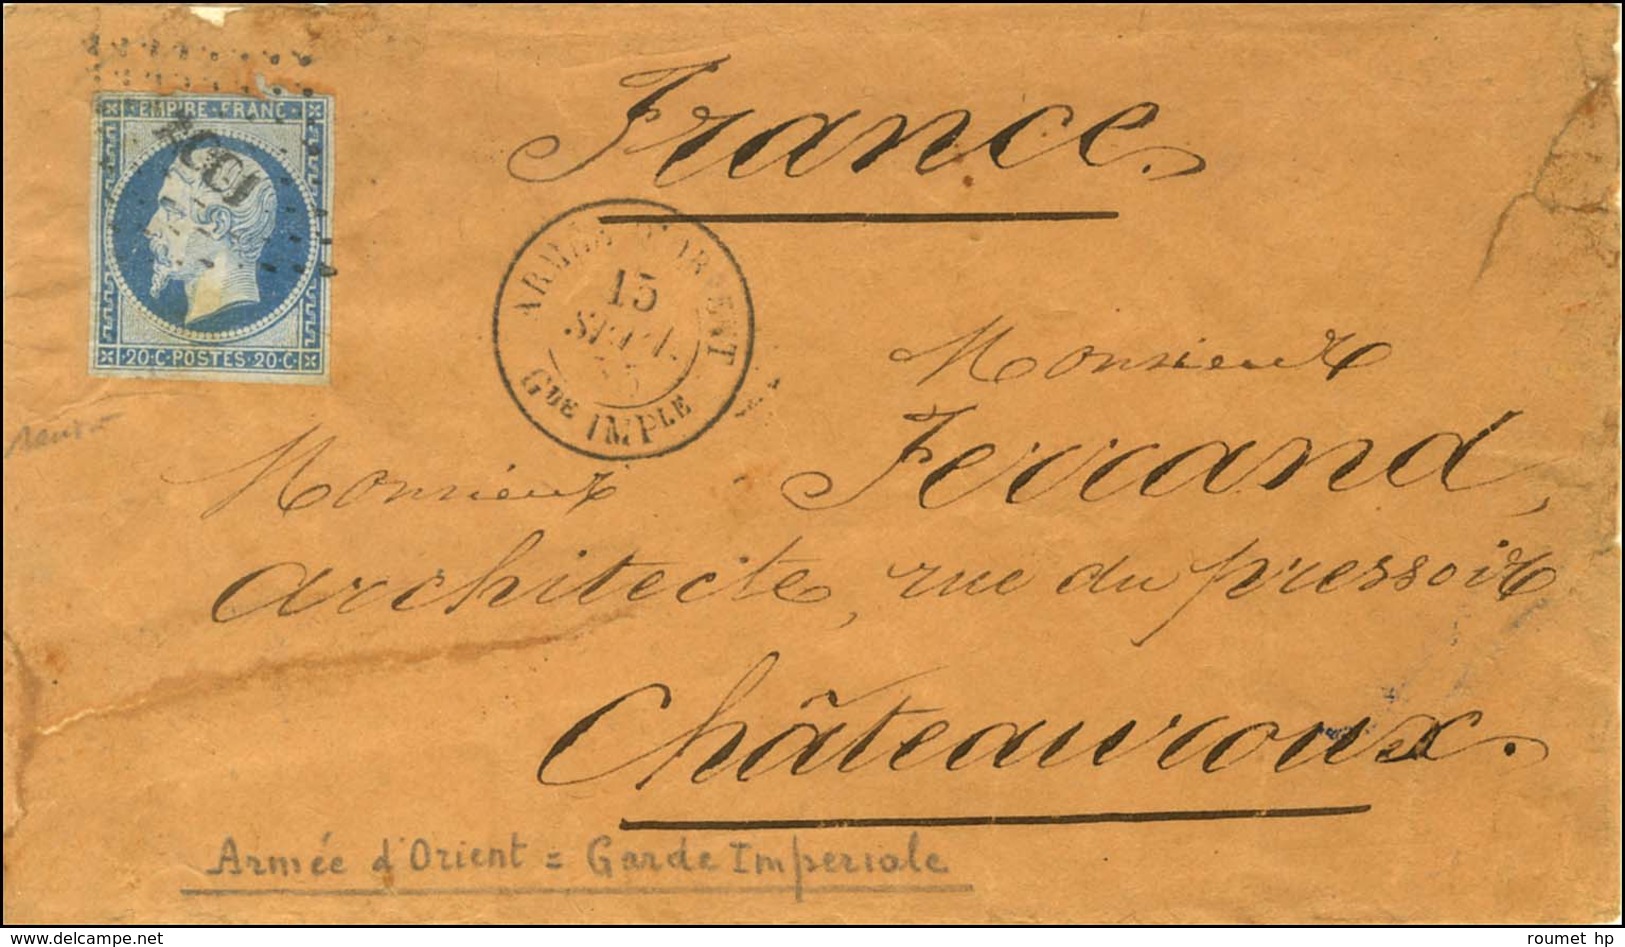 France
EMPIRE · FRANC ·
20 · C · POSTES · 20 · C ·
ARMÉE D'ORIENT
15
SEPT.
55
Gde IMPLE
Monsieur
Monsieur Ferrand,
architecte, rue du pressoir
Châteauroux.
Armée d'Orient = Garde Imperiale
www.delcampe.net
roumet hp